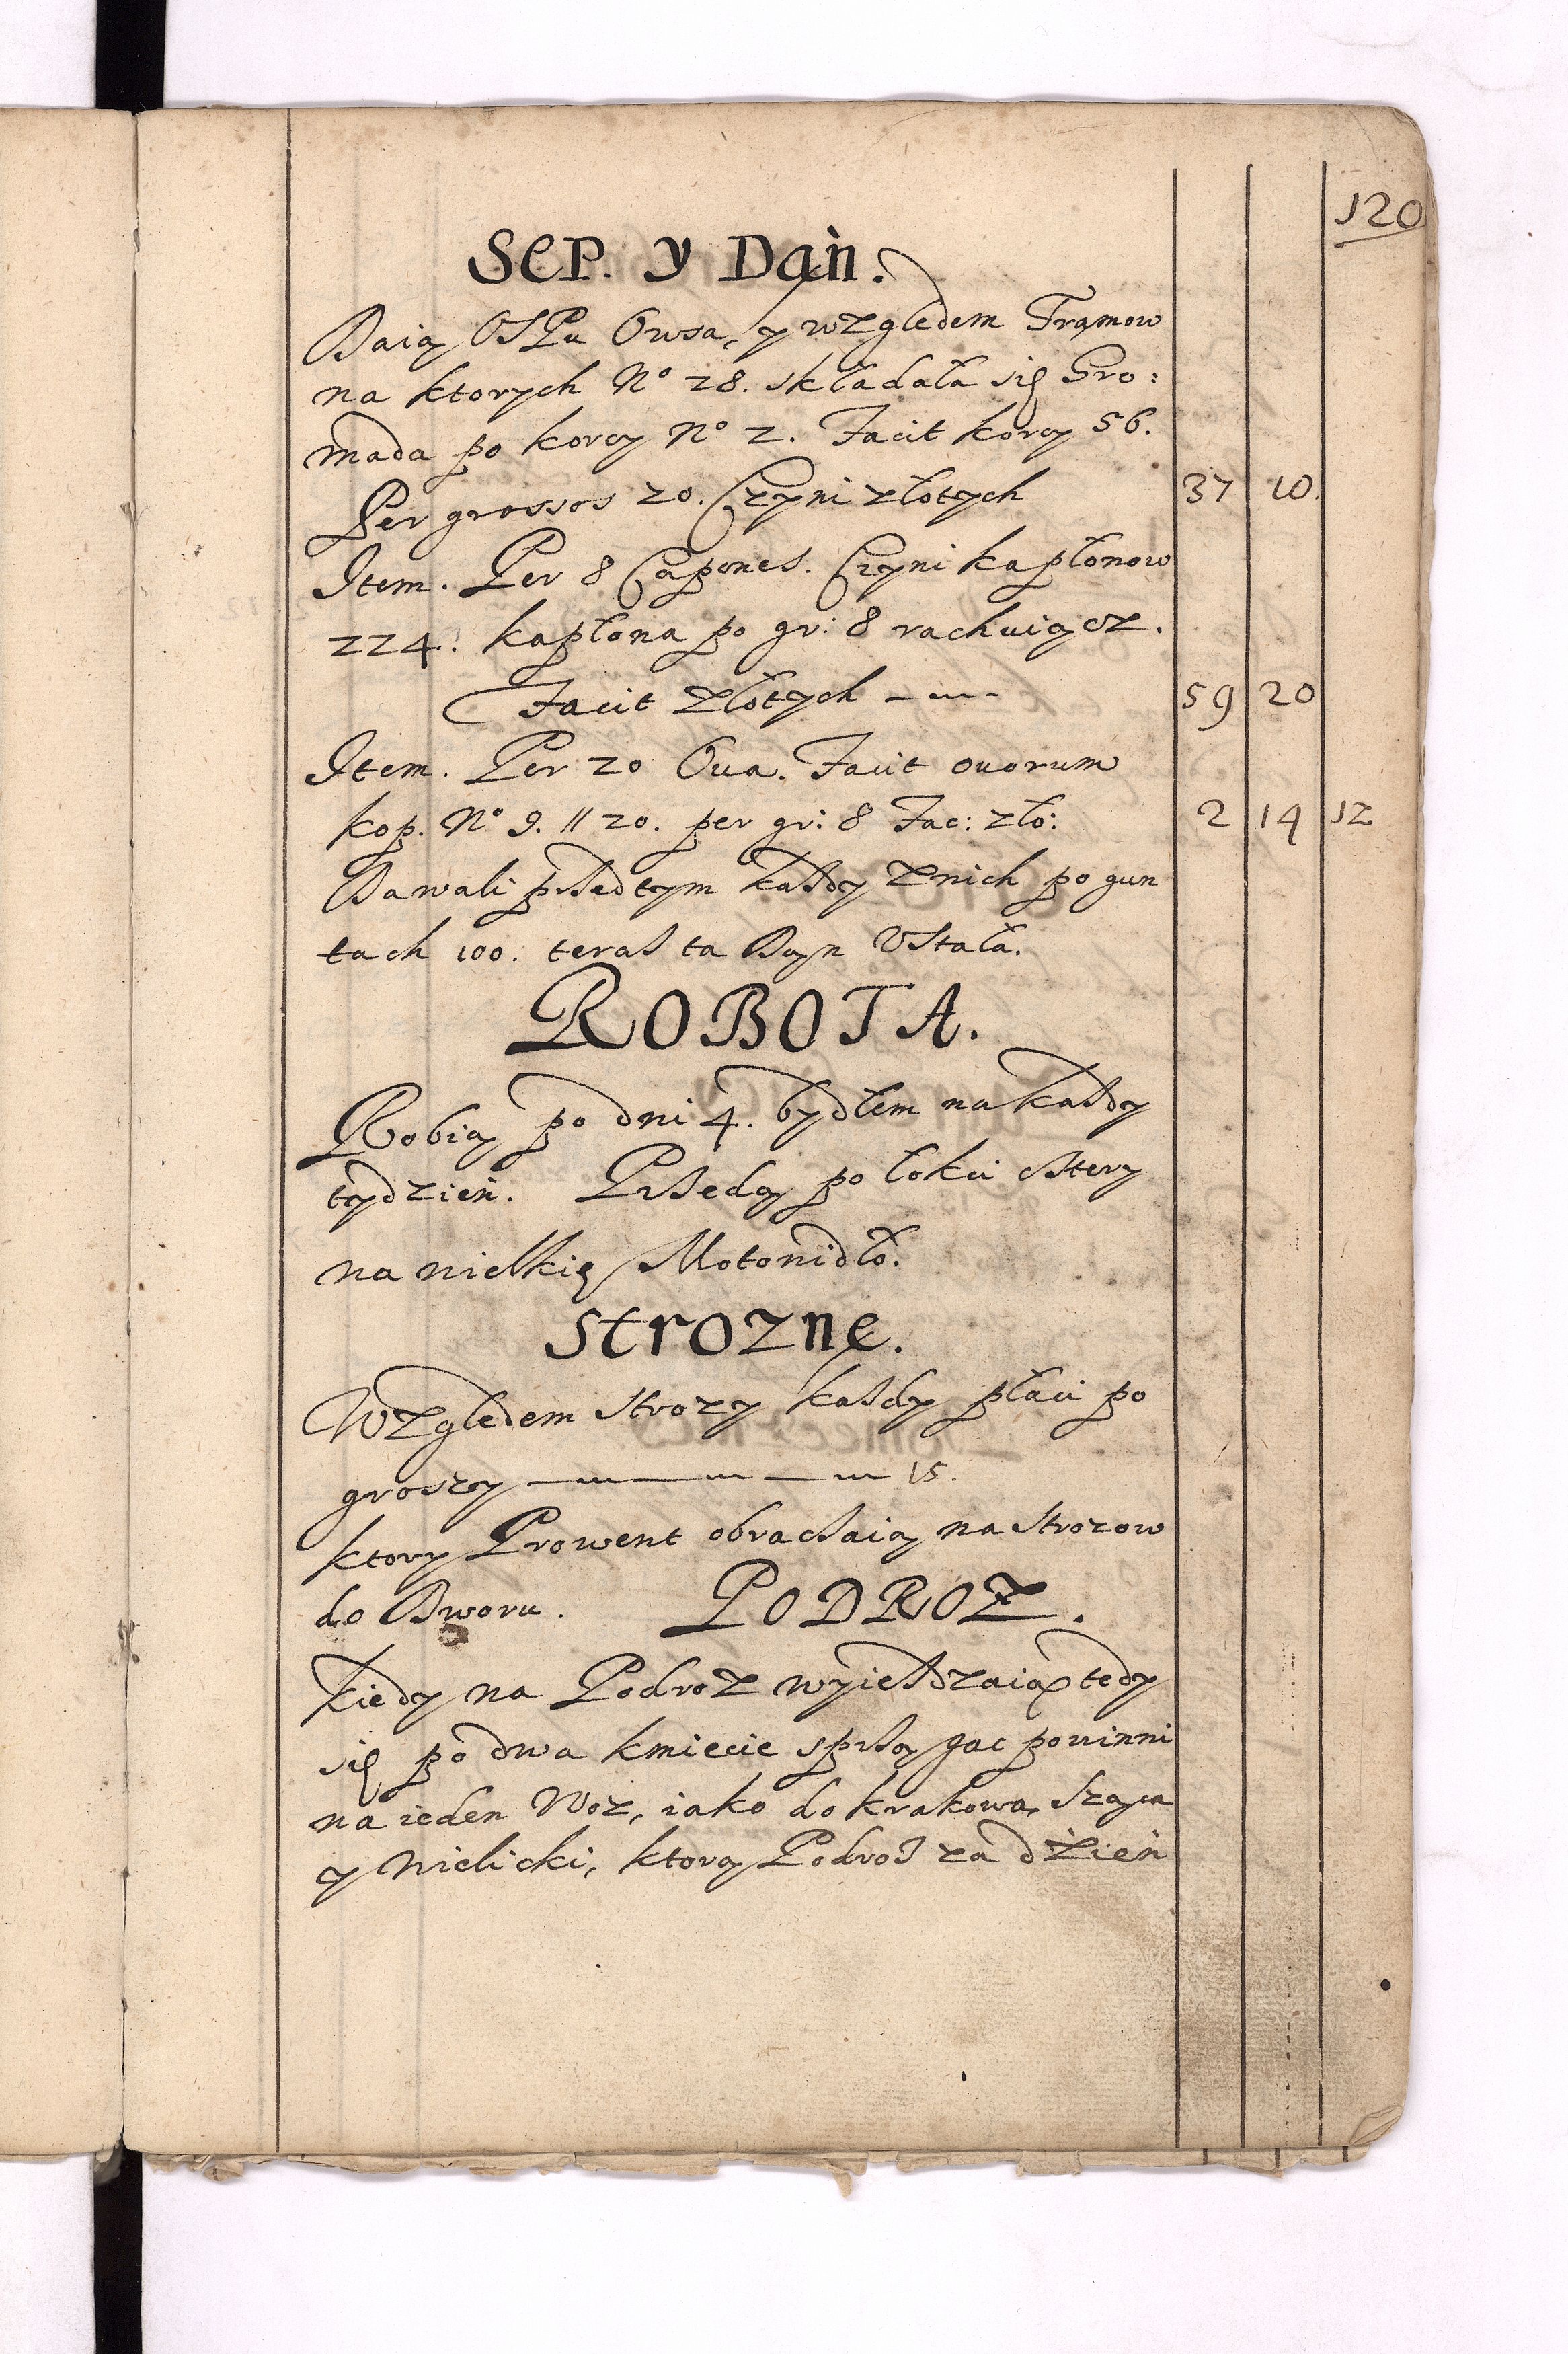 120
SEP. y Dań.
Daią OSPu Owsa, y względem Tramow
na ktorych No 28. składała się Gro:
mada po korcy No 2. Facit korcy 56.
Per grossos 20. Czyni złotych 37 10.
Item. Per 8 Capones. Czyni kapłonow
224. kapłona po gr: 8 rachuiącz.
Facit złotych 59 20
Item. Per 20 Oua. Facit ouorum
kop. No 9. // 20. per gr: 8 Fac: zło: 2 14 12
Dawali przedtym każdy z nich po gun
tach 100. teras ta Dań Ustała.
ROBOTA.
Robią po dni 4. bydłem na każdy
tydzień. Przędą po łokci cztery
na wielkię Motowidło.
Strozne.
Względem strozy każdy płaci po
groszy 15.
ktory Prowent obracaią na Strozow
do Dworu. PODROZ.
Kiedy na Podroz wyieżdzaią tedy
się po dwa kmiecie sprzągac powinni
na ieden Woz, iako do krakowa,
y Wielicki, ktorą Podroż za dźień